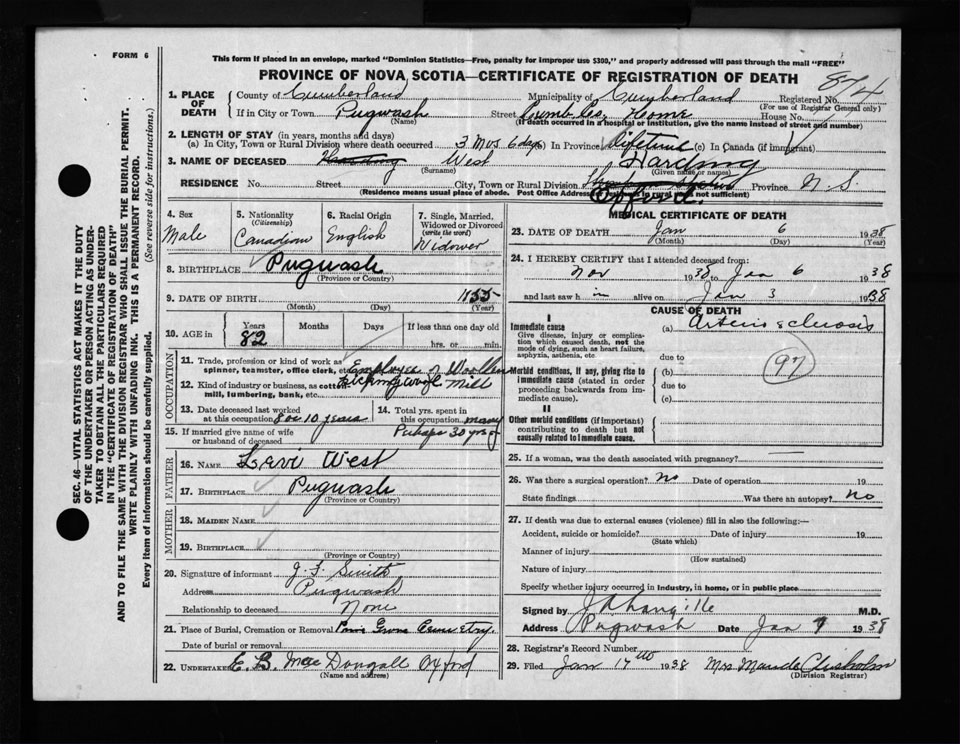 FORM 6
This form if placed in an envelope, marked "Dominion Statistics—Free, penalty for improper use $300," and properly addressed will pass through the mail "FREE"
PROVINCE OF NOVA SCOTIA—CERTIFICATE OF REGISTRATION OF DEATH
874
1. PLACE OF DEATH
County of Cumberland Municipality of Cumberland Registered No.
(For use of Registrar General only)
If in City or Town Pugwash Street Cumb. Co. Home House No.
(Name) (If death occurred in a hospital or institution, give the name instead of street and number)
2. LENGTH OF STAY (in years, months and days)
(a) In City, Town or Rural Division where death occurred 3 Mos 6 days In Province Lifetime (c) In Canada (if immigrant)
3. NAME OF DECEASED Harding West Harding
(Surname) (Given name or names)
RESIDENCE No. Street City, Town or Rural Division Oxford. Province N. S.
(Residence means usual place of abode. Post Office Address in rural areas not sufficient)
4. Sex
Male
5. Nationality
(Citizenship)
Canadian
6. Racial Origin
English
7. Single, Married, Widowed or Divorced
(write the word)
Widower
8. BIRTHPLACE Pugwash
(Province or Country)
9. DATE OF BIRTH 1855
(Month) (Day) (Year)
10. AGE in
Years Months Days If less than one day old
82 hrs. or min.
OCCUPATION
11. Trade, profession or kind of work as spinner, teamster, office clerk, etc. Employee of Woollen
12. Kind of industry or business, as cotton mill, lumbering, bank, etc. Picking Wool Mill
13. Date deceased last worked at this occupation 8 or 10 years
14. Total yrs. spent in this occupation many
Perhaps 30 yrs
15. If married give name of wife or husband of deceased
FATHER
16. NAME Levi West
17. BIRTHPLACE Pugwash
(Province or Country)
MOTHER
18. MAIDEN NAME
19. BIRTHPLACE
(Province or Country)
20. Signature of informant J. F. Smith
Address Pugwash
Relationship to deceased None
21. Place of Burial, Cremation or Removal Pine Grove Cemetery.
Date of burial or removal
22. UNDERTAKER E. B. MacDougall Oxford
(Name and address)
MEDICAL CERTIFICATE OF DEATH
23. DATE OF DEATH Jan 6 1938
(Month) (Day) (Year)
24. I HEREBY CERTIFY that I attended deceased from:
Nov 1938 to Jan 6 1938
and last saw h im alive on Jan 3 1938
CAUSE OF DEATH
I
Immediate cause
Give disease, injury or complication which caused death, not the mode of dying, such as heart failure, asphyxia, asthenia, etc.
(a) Arterio sclerosis
due to
97
Morbid conditions, if any, giving rise to immediate cause (stated in order proceeding backwards from immediate cause).
(b)
due to
(c)
II
Other morbid conditions (if important) contributing to death but not causally related to immediate cause.
25. If a woman, was the death associated with pregnancy?
26. Was there a surgical operation? No Date of operation 19
State findings Was there an autopsy? No
27. If death was due to external causes (violence) fill in also the following:—
Accident, suicide or homicide? Date of injury 19
(State which)
Manner of injury
(How sustained)
Nature of injury
Specify whether injury occurred in industry, in home, or in public place
Signed by M.D.
Address Pugwash Date Jan 9 1938
28. Registrar's Record Number
29. Filed Jan 17th 1938 Mrs Maude Chisholm
(Division Registrar)
SEC. 46—VITAL STATISTICS ACT MAKES IT THE DUTY
OF THE UNDERTAKER OR PERSON ACTING AS UNDER-
TAKER TO OBTAIN ALL THE PARTICULARS REQUIRED
IN THE "CERTIFICATE OF REGISTRATION OF DEATH"
AND TO FILE THE SAME WITH THE DIVISION REGISTRAR WHO SHALL ISSUE THE BURIAL PERMIT.
WRITE PLAINLY WITH UNFADING INK. THIS IS A PERMANENT RECORD.
Every item of information should be carefully supplied. (See reverse side for instructions.)